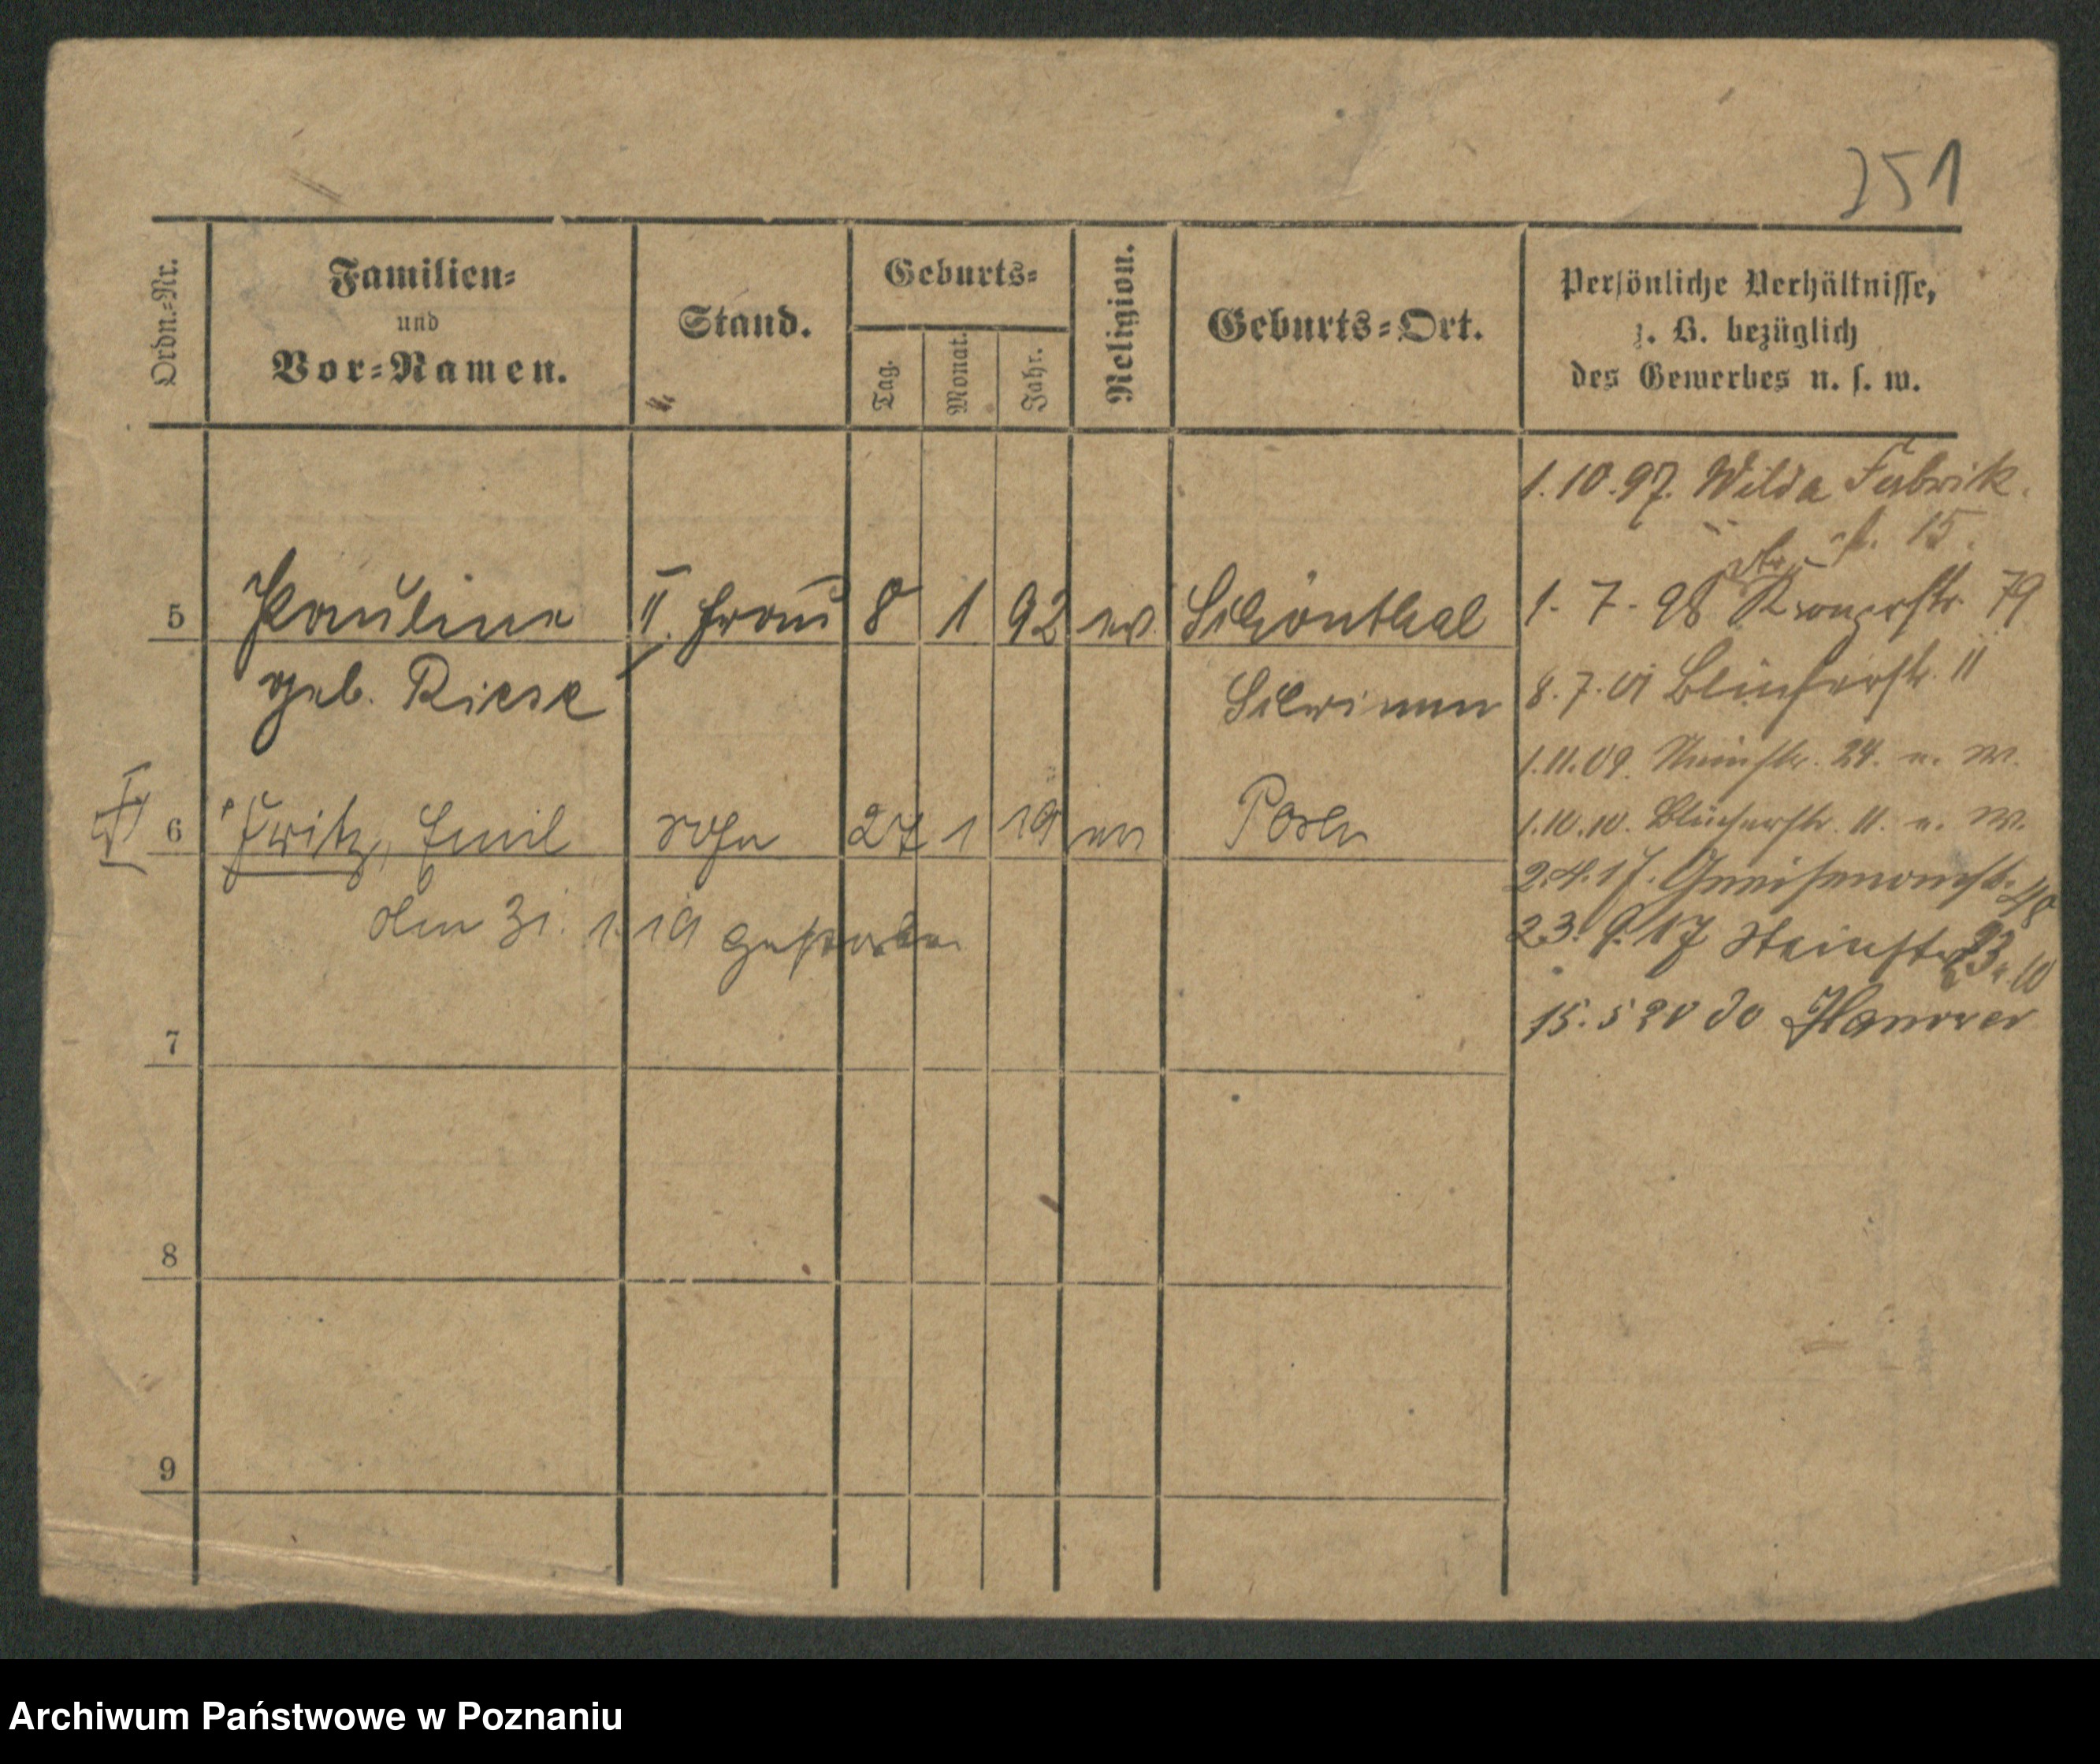 251
Ordn.-Nr.
Familien-
und
Vor-Namen.
Stand.
Geburts-
Tag.
Monat.
Jahr.
Religion.
Geburts-Ort.
Persönliche Verhältnisse,
z. B. bezüglich
des Gewerbes u. s. w.
1.10.97. Wilda Fabrik
str. 15.
5 Pauline II. Frau 8 1 92 ev. Schönthal
geb. Riese
1.7.98 Kronprstr. 79
8.7.01 Blücherstr. 11
1.11.09. 24. n. W.
6 Fritz, Emil Sohn 27 1 19 ev Posen
den 31. 1. 19 gestorben
1.10.10. Blücherstr. 11. n. W.
2.4.17. Gneisenaustr. 48
23.9.17 Steinstr. 23 10
15.5 20 Hannover
7
8
9
Archiwum Państwowe w Poznaniu